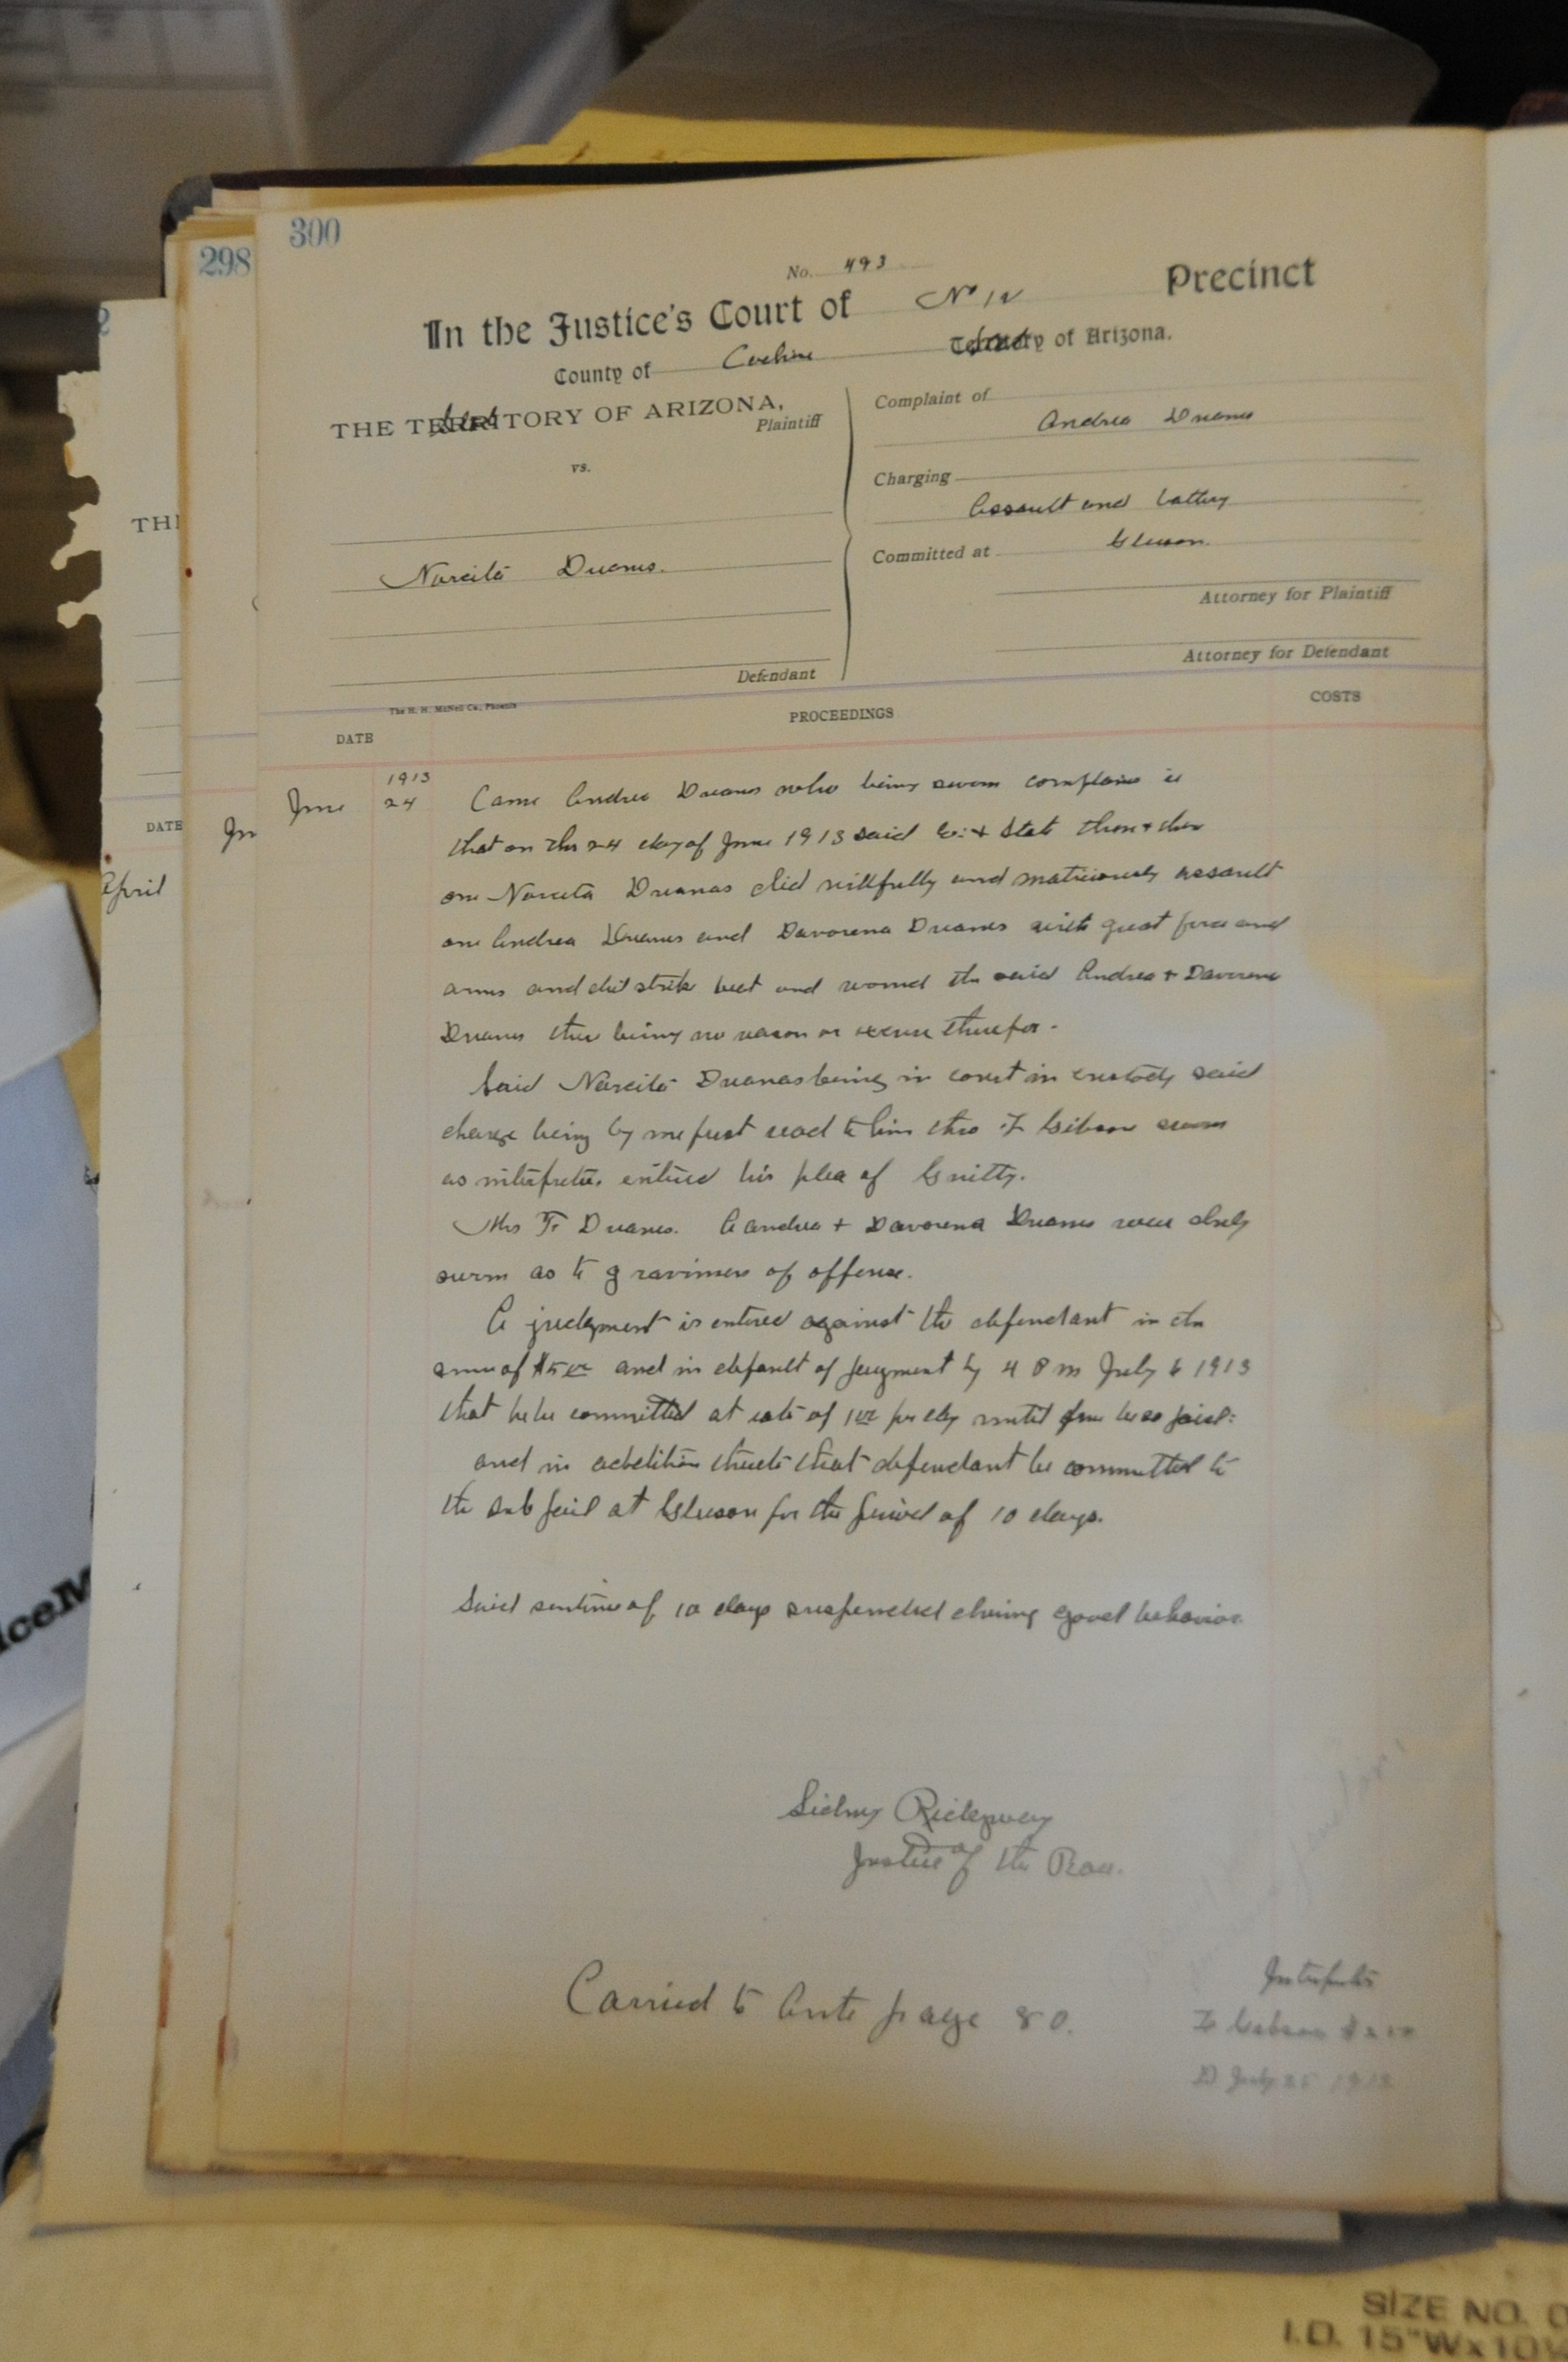 300
298
No. 493
In the Justice's Court of No 12 Precinct
County of Cochise State of Arizona.
THE TERRITORY OF ARIZONA,
State
Plaintiff
vs.
Narcito Duanas.
Defendant
Complaint of
Andrea Duanas
Charging
Assault and battery
Committed at Gleeson
Attorney for Plaintiff
Attorney for Defendant
The H. H. McNeil Co., Phoenix
DATE
PROCEEDINGS
COSTS
1913
June 24 Came Andrea Duanas who being sworn complains
that on the 24 day of June 1913 said Co. & State then & there
one Narcito Duanas did willfully and maliciously assault
one Andrea Duanas and Davorena Duanas with great force and
arms and did strike beat and wound the said Andrea & Davorena
Duanas there being no reason or excuse therefor.
Said Narcito Duanas being in court in custody said
charge being by me first read to him thro F Gibson sworn
as interpreter, entered his plea of Guilty.
Mrs Fr Duanas. Andrea & Davorena Duanas were duly
sworn as to gravimen of offense.
A judgment is entered against the defendant in the
sum of $5 00 and in default of judgment by 4 P m July 6 1913
that he be committed at rate of 1 00 per day until fine be so paid:
and in addition thereto that defendant be committed to
the sub jail at Gleeson for the period of 10 days.
Said sentence of 10 days suspended during good behavior.
Sidney Ridgway
Justice of the Peace.
Carried to Ante page 80.
Interpreter
F Gibson
TH
DATE
April
Jun
iceM
SIZE NO.
I.D. 15"W x 10